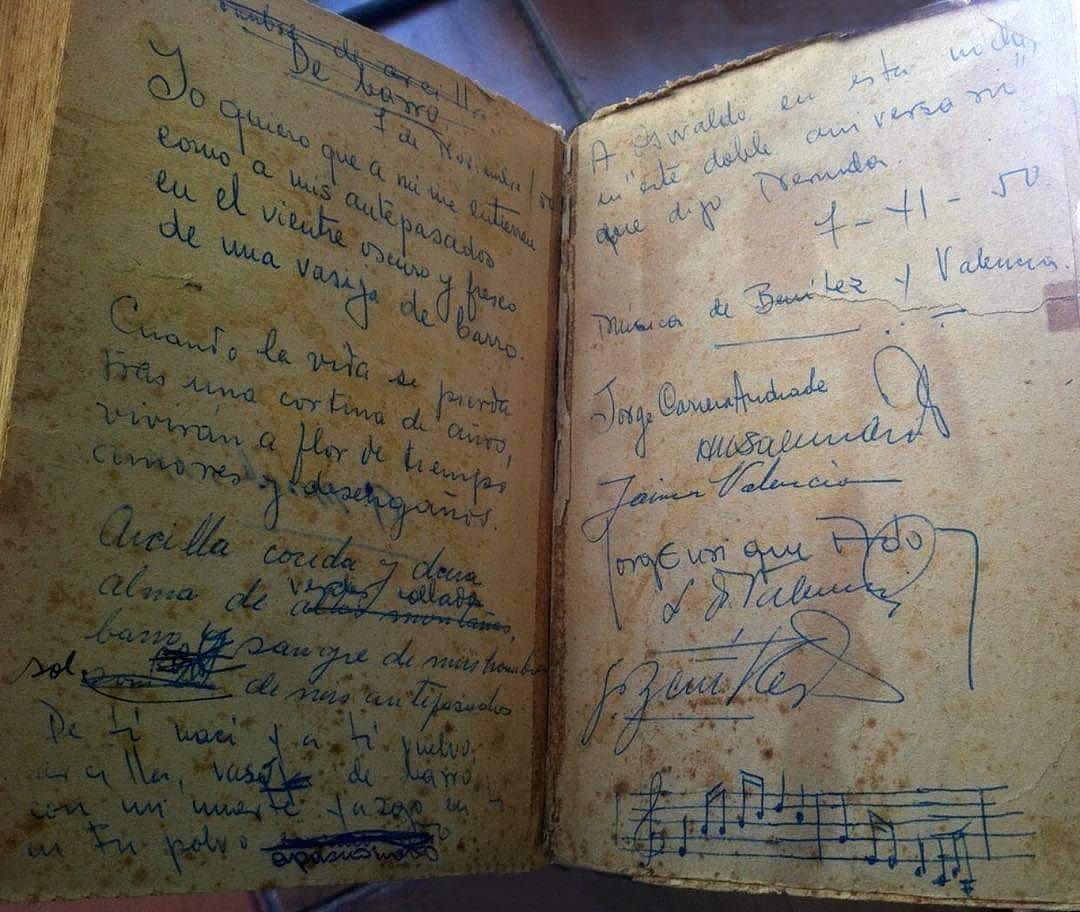 De barro
7 de Noviembre / 50
Yo quiero que a mí me entierren
como a mis antepasados
en el vientre oscuro y fresco
de una vasija de barro.
Cuando la vida se pierda
tras una cortina de años,
vivirán a flor de tiempo
amores y desengaños.
Arcilla cocida y dura
alma de verdes collados
barro y sangre de mis hombres
sol de mis antepasados
De ti nací y a ti vuelvo
arcilla, vaso de barro
con mi muerte yazgo en ti
en tu polvo apasionado
A Oswaldo en esta noche,
en "este doble aniversario"
que dijo Neruda.
7 - XI - 50
Música de Benítez y Valencia.
Jorge Carrera Andrade
Jaime Valencia
Jorge Enrique Adoum
L. A. Valencia
G. Benítez